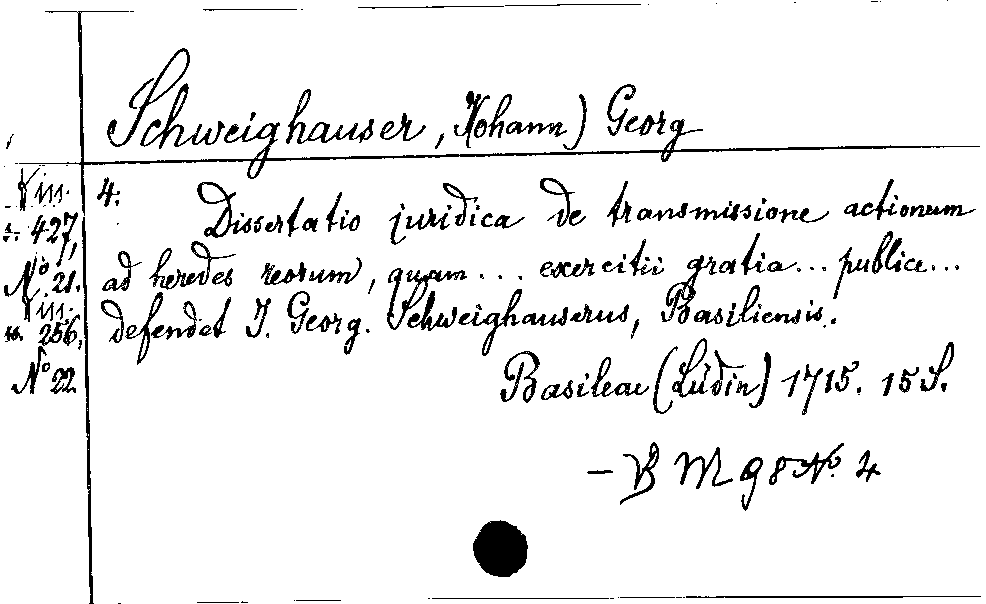 Schweighauser, Johann) Georg
4. Dissertatio juridica de transmissione actionum
ad heredes reorum, quam... exercitii gratia... publice...
defendet J. Georg. Schweighauserus, Basiliensis.
Basileae (Lüdin) 1715. 15 S.
– B M 98 No. 4
427,
No 21.
256,
No 22